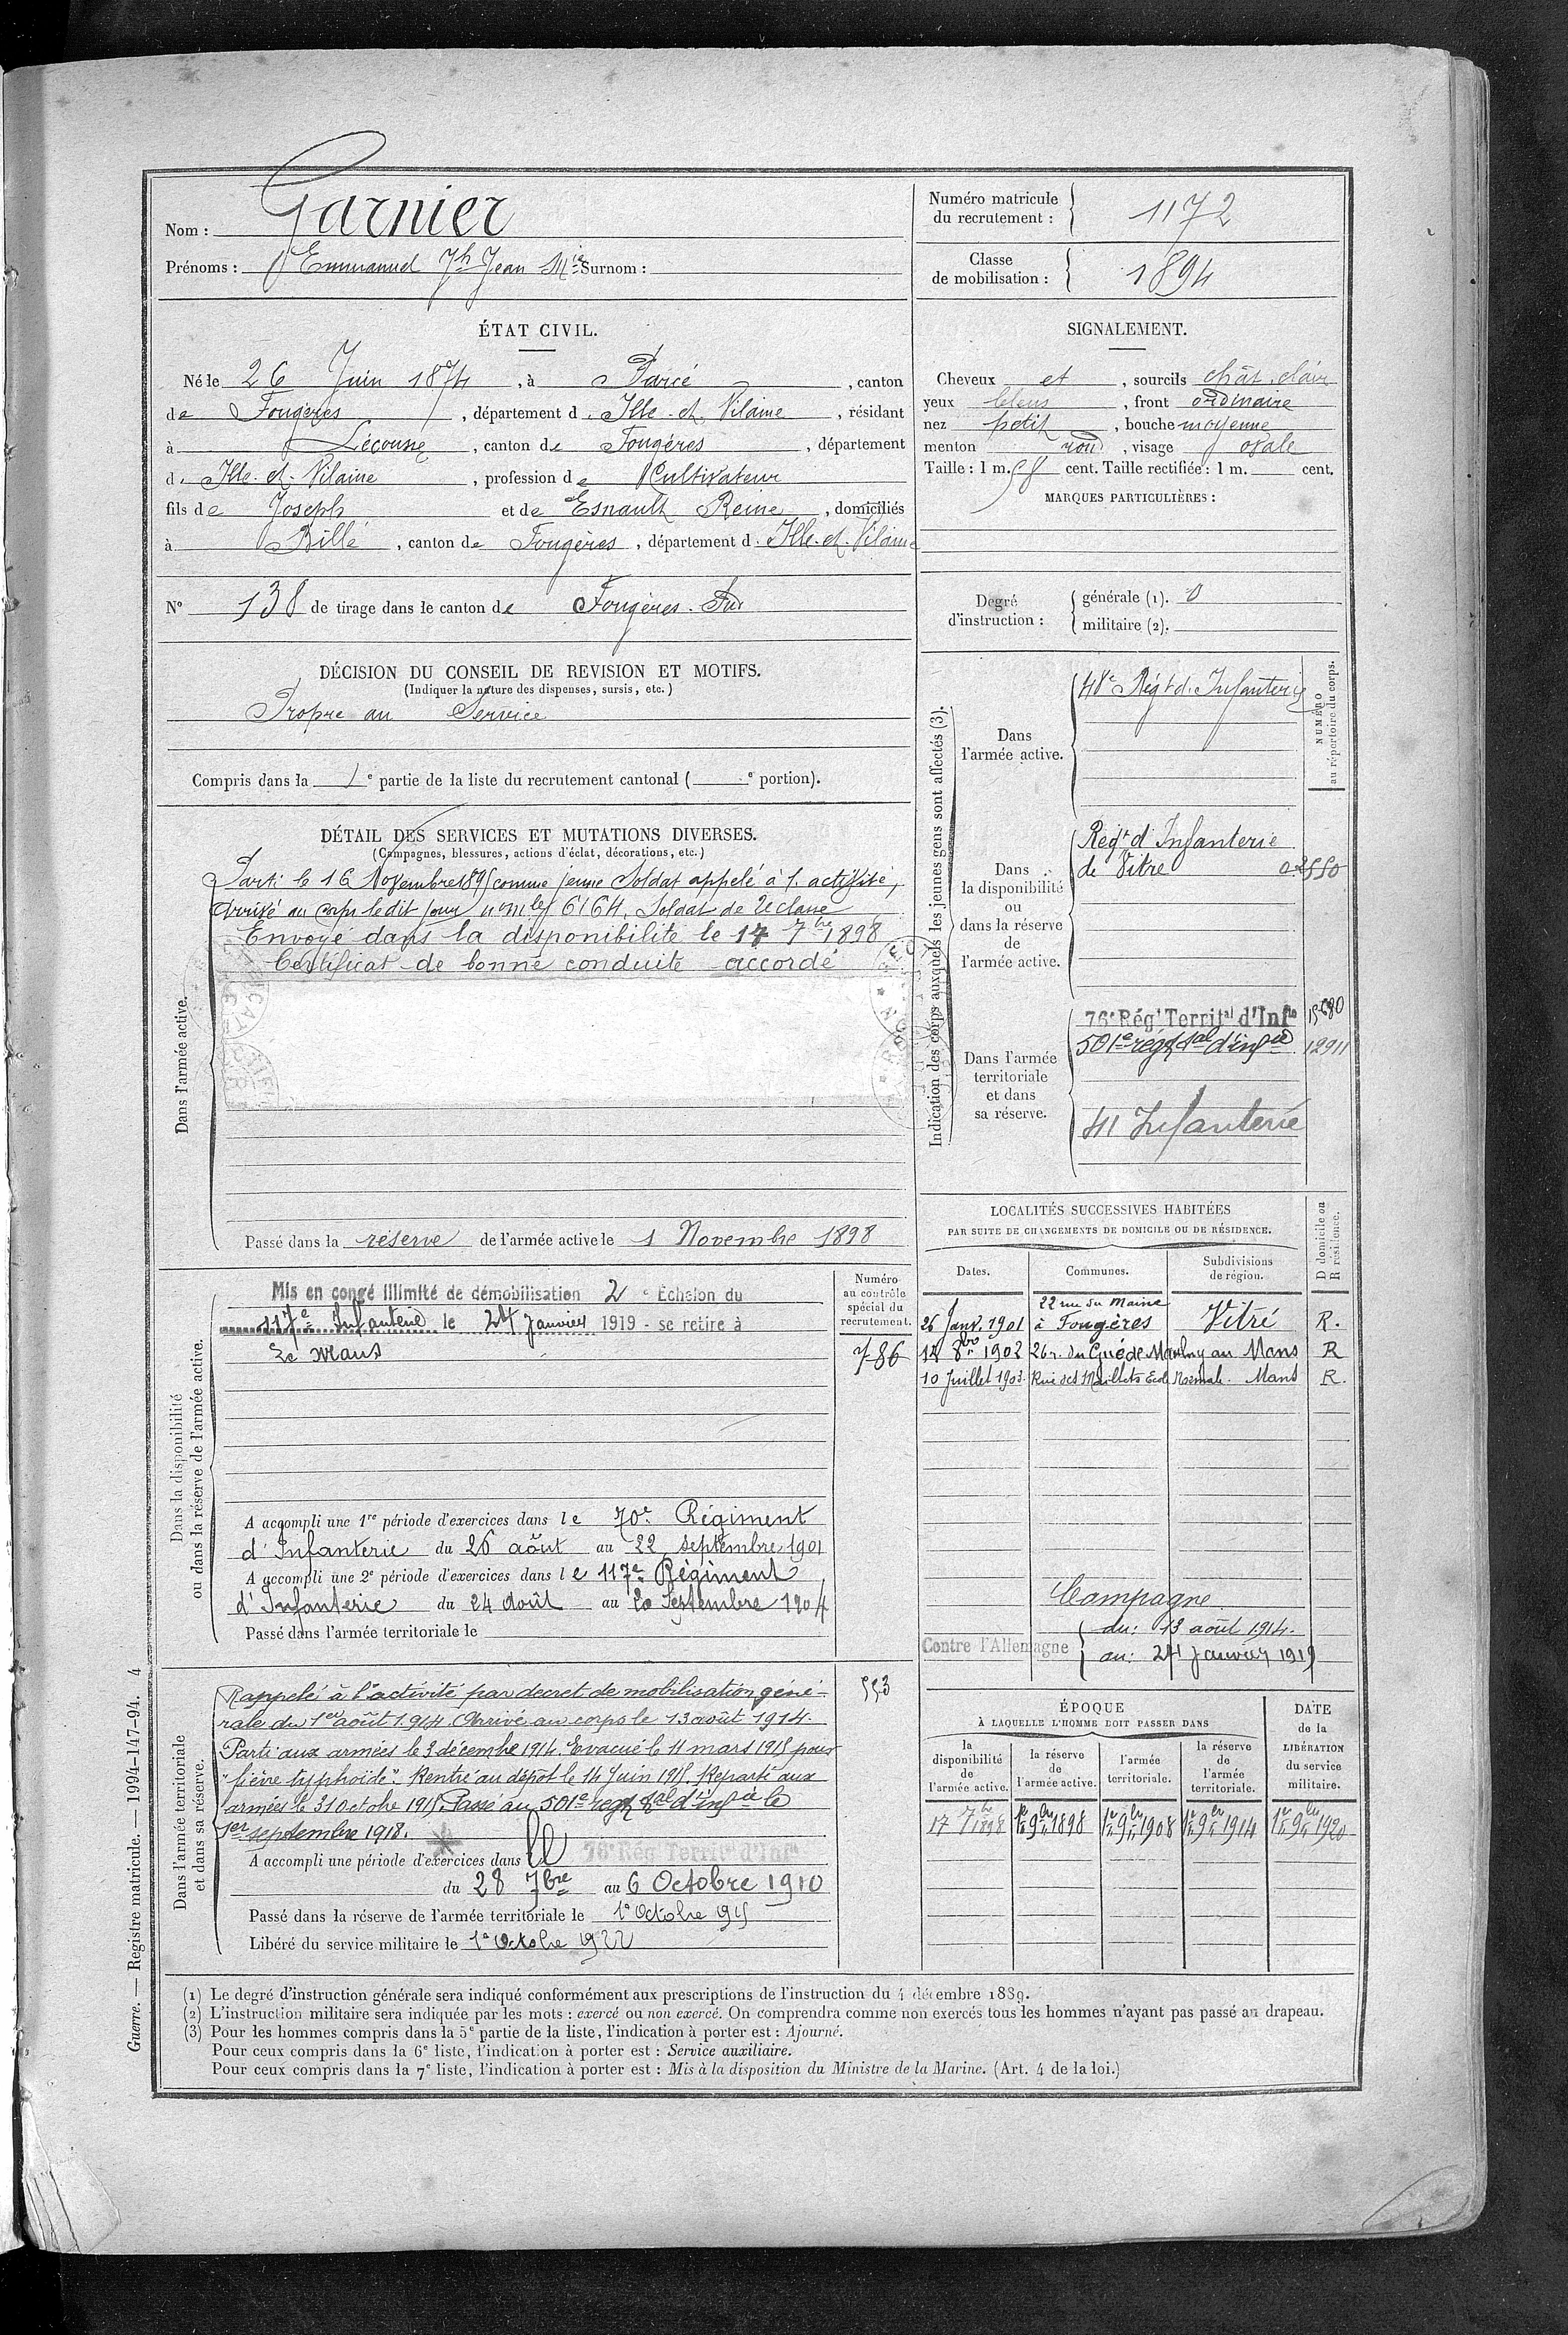 Nom : Garnier
Prénoms : Emmanuel Jh Jean Mie Surnom :
Numéro matricule du recrutement : 1172
Classe de mobilisation : 1894
ÉTAT CIVIL.
Né le 26 Juin 1874, à Parcé, canton
de Fougères, département d. Ille-et-Vilaine, résidant
à Lécousse, canton de Fougères, département
d. Ille-et-Vilaine, profession de Cultivateur
fils de Joseph et de Esnault Reine, domiciliés
à Billé, canton de Fougères, département d. Ille-et-Vilaine
N° 138 de tirage dans le canton de Fougères-Sud
SIGNALEMENT.
Cheveux et, sourcils chât. clair
yeux bleus, front ordinaire
nez petit, bouche moyenne
menton rond, visage ovale
Taille : 1 m. 58 cent. Taille rectifiée : 1 m. cent.
MARQUES PARTICULIÈRES :
Degré d'instruction :
générale (1). 0
militaire (2).
DÉCISION DU CONSEIL DE REVISION ET MOTIFS.
(Indiquer la nature des dispenses, sursis, etc.)
Propre au Service
Compris dans la 1e partie de la liste du recrutement cantonal ( e portion).
DÉTAIL DES SERVICES ET MUTATIONS DIVERSES.
(Campagnes, blessures, actions d'éclat, décorations, etc.)
Dans l'armée active.
Parti le 16 Novembre 1895 comme jeune Soldat appelé à l'activité,
Arrivé au corps le dit jour no mle 6164. Soldat de 2e classe
Envoyé dans la disponibilité le 17 7bre 1898
Certificat de bonne conduite accordé
Passé dans la réserve de l'armée active le 1 Novembre 1898
Indication des corps auxquels les jeunes gens sont affectés (3).
NUMÉRO au répertoire du corps.
Dans l'armée active.
48e Régt d. Infanterie
Dans la disponibilité ou dans la réserve de l'armée active.
Régt d'Infanterie
de Vitré
Dans l'armée territoriale et dans sa réserve.
76e Régt Territal d'Infie
501e régt tal d'infie 12911
41 Infanterie
LOCALITÉS SUCCESSIVES HABITÉES
PAR SUITE DE CHANGEMENTS DE DOMICILE OU DE RÉSIDENCE.
Dates.
Communes.
Subdivisions de région.
D domicile ou R résidence.
26 Janv. 1901 22 rue du Maine à Fougères Vitré R.
18 8bre 1902 26 r. du Gué de Maulny au Mans R
10 Juillet 1903. Rue des Maillets Ecole Normale. Mans R.
Campagne
Contre l'Allemagne
du : 13 août 1914.
au : 24 janvier 1919
Dans la disponibilité ou dans la réserve de l'armée active.
Numéro au contrôle spécial du recrutement.
786
Mis en congé illimité de démobilisation 2e Echelon du
117e Infanterie le 24 Janvier 1919 - se retire à
Le Mans
A accompli une 1re période d'exercices dans le 70e Régiment
d'Infanterie du 26 août au 22 septembre 1901
A accompli une 2e période d'exercices dans le 117e Régiment
d'Infanterie du 24 Août au 20 Septembre 1904
Passé dans l'armée territoriale le
Dans l'armée territoriale et dans sa réserve.
553
Rappelé à l'activité par décret de mobilisation géné-
rale du 1er août 1914. Arrivé au corps le 13 août 1914.
Parti aux armées le 3 décembre 1914. Evacué le 11 mars 1915 pour
"fièvre typhoïde". Rentré au dépôt le 14 Juin 1915. Reparti aux
armées le 31 octobre 1915. Passé au 501e régt tal d'infie le
1er septembre 1918.
A accompli une période d'exercices dans le 76e Rég Territal d'Infie
du 28 7bre au 6 Octobre 1910
Passé dans la réserve de l'armée territoriale le 1e Octobre 1915
Libéré du service militaire le 1e Octobre 1922
ÉPOQUE
À LAQUELLE L'HOMME DOIT PASSER DANS
la disponibilité de l'armée active.
la réserve de l'armée active.
l'armée territoriale.
la réserve de l'armée territoriale.
DATE de la LIBÉRATION du service militaire.
17 7bre 1898
1er 9bre 1898
1er 9bre 1908
1er 9bre 1914
1er 9bre 1920
(1) Le degré d'instruction générale sera indiqué conformément aux prescriptions de l'instruction du 4 décembre 1889.
(2) L'instruction militaire sera indiquée par les mots : exercé ou non exercé. On comprendra comme non exercés tous les hommes n'ayant pas passé au drapeau.
(3) Pour les hommes compris dans la 5e partie de la liste, l'indication à porter est : Ajourné.
Pour ceux compris dans la 6e liste, l'indication à porter est : Service auxiliaire.
Pour ceux compris dans la 7e liste, l'indication à porter est : Mis à la disposition du Ministre de la Marine. (Art. 4 de la loi.)
Guerre. — Registre matricule. — 1994-147-94. 4